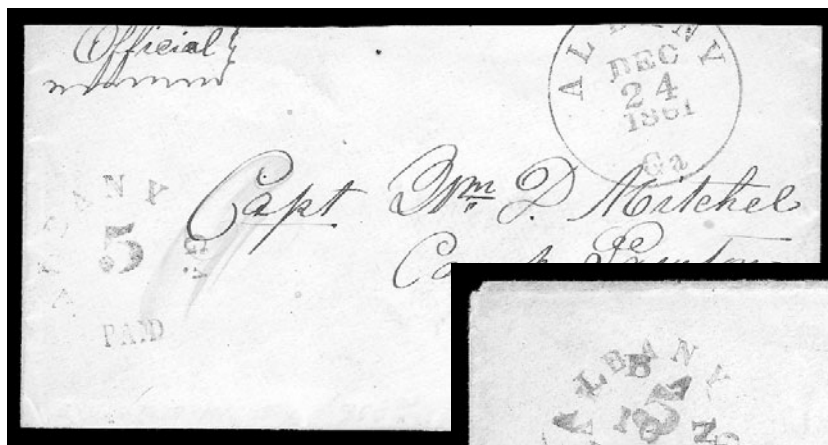 Official
ALBANY
DEC
24
1861
Ga
ALBANY
5
Ga
PAID
Capt Wm D. Mitchel
ALBANY